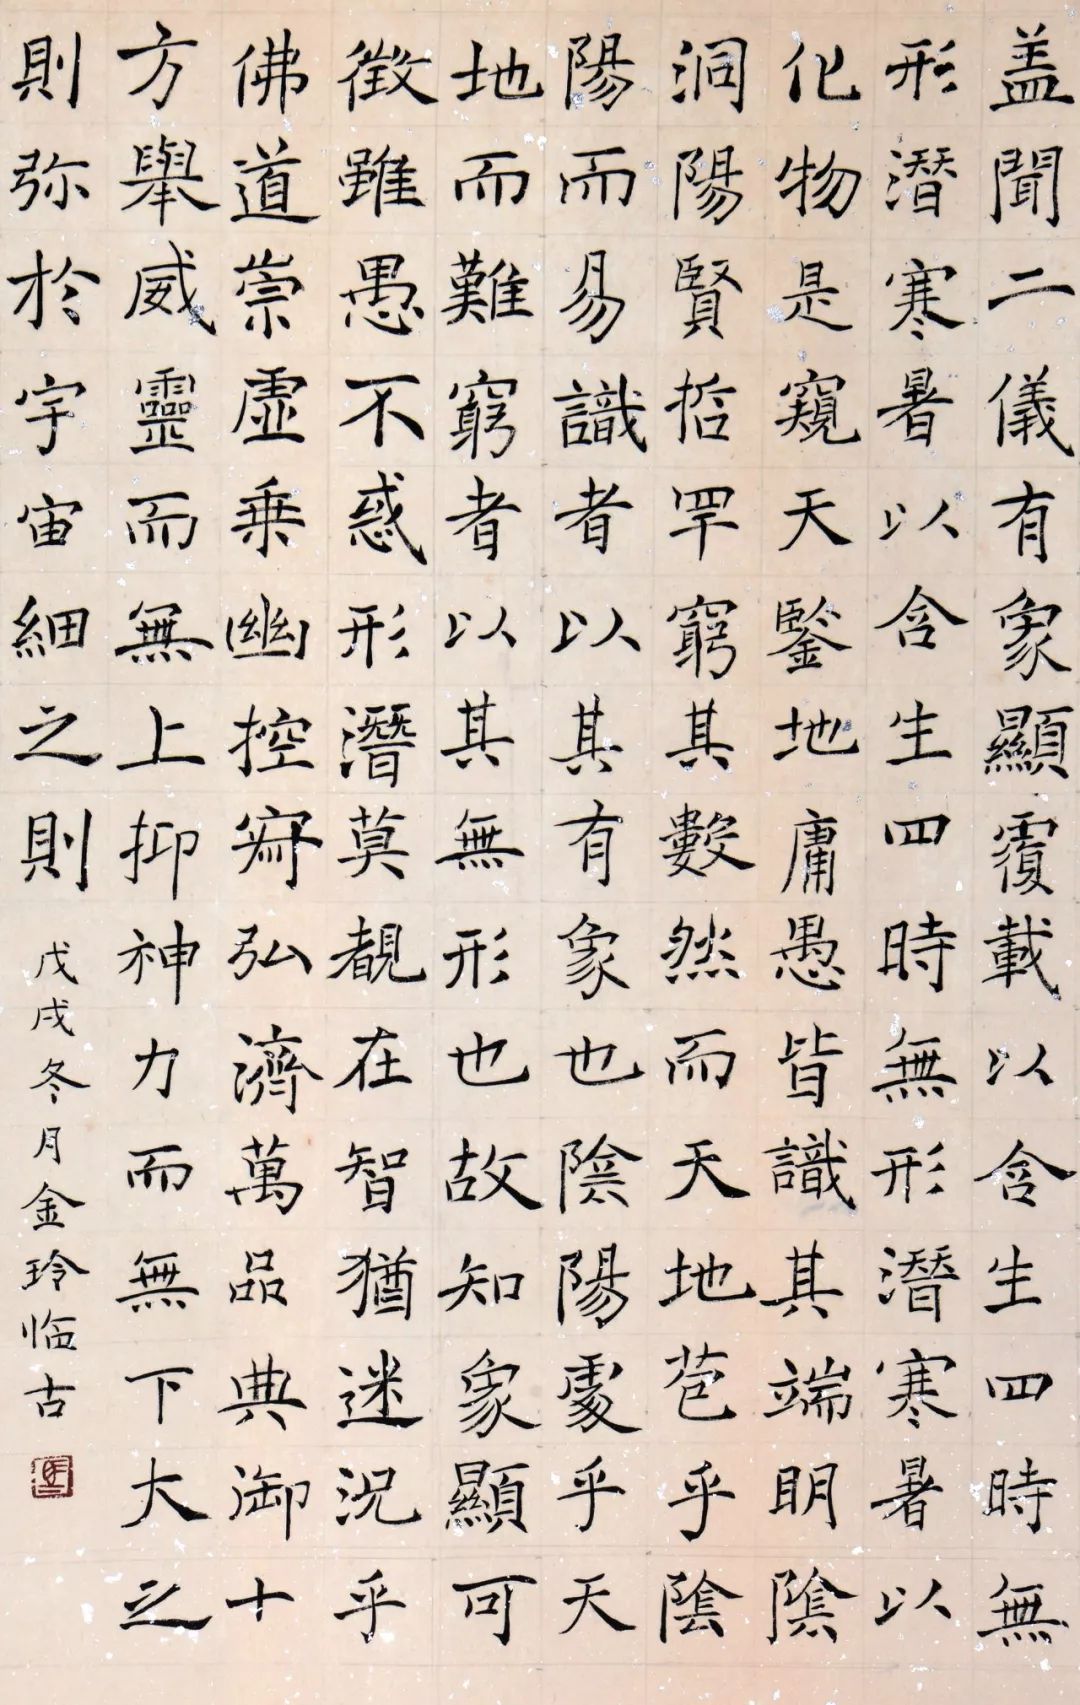 盖聞二儀有象顯覆載以含生四時無
形潛寒暑以含生四時無形潛寒暑以
化物是窺天鑒地庸愚皆識其端明陰
洞陽賢哲罕窮其數然而天地苞乎陰
陽而易識者以其有象也陰陽處乎天
地而難窮者以其無形也故知象顯可
徵雖愚不惑形潛莫覩在智猶迷況乎
佛道崇虛乗幽控寂弘濟萬品典御十
方舉威靈而無上抑神力而無下大之
則弥於宇宙細之則
戊戌冬月金玲临古